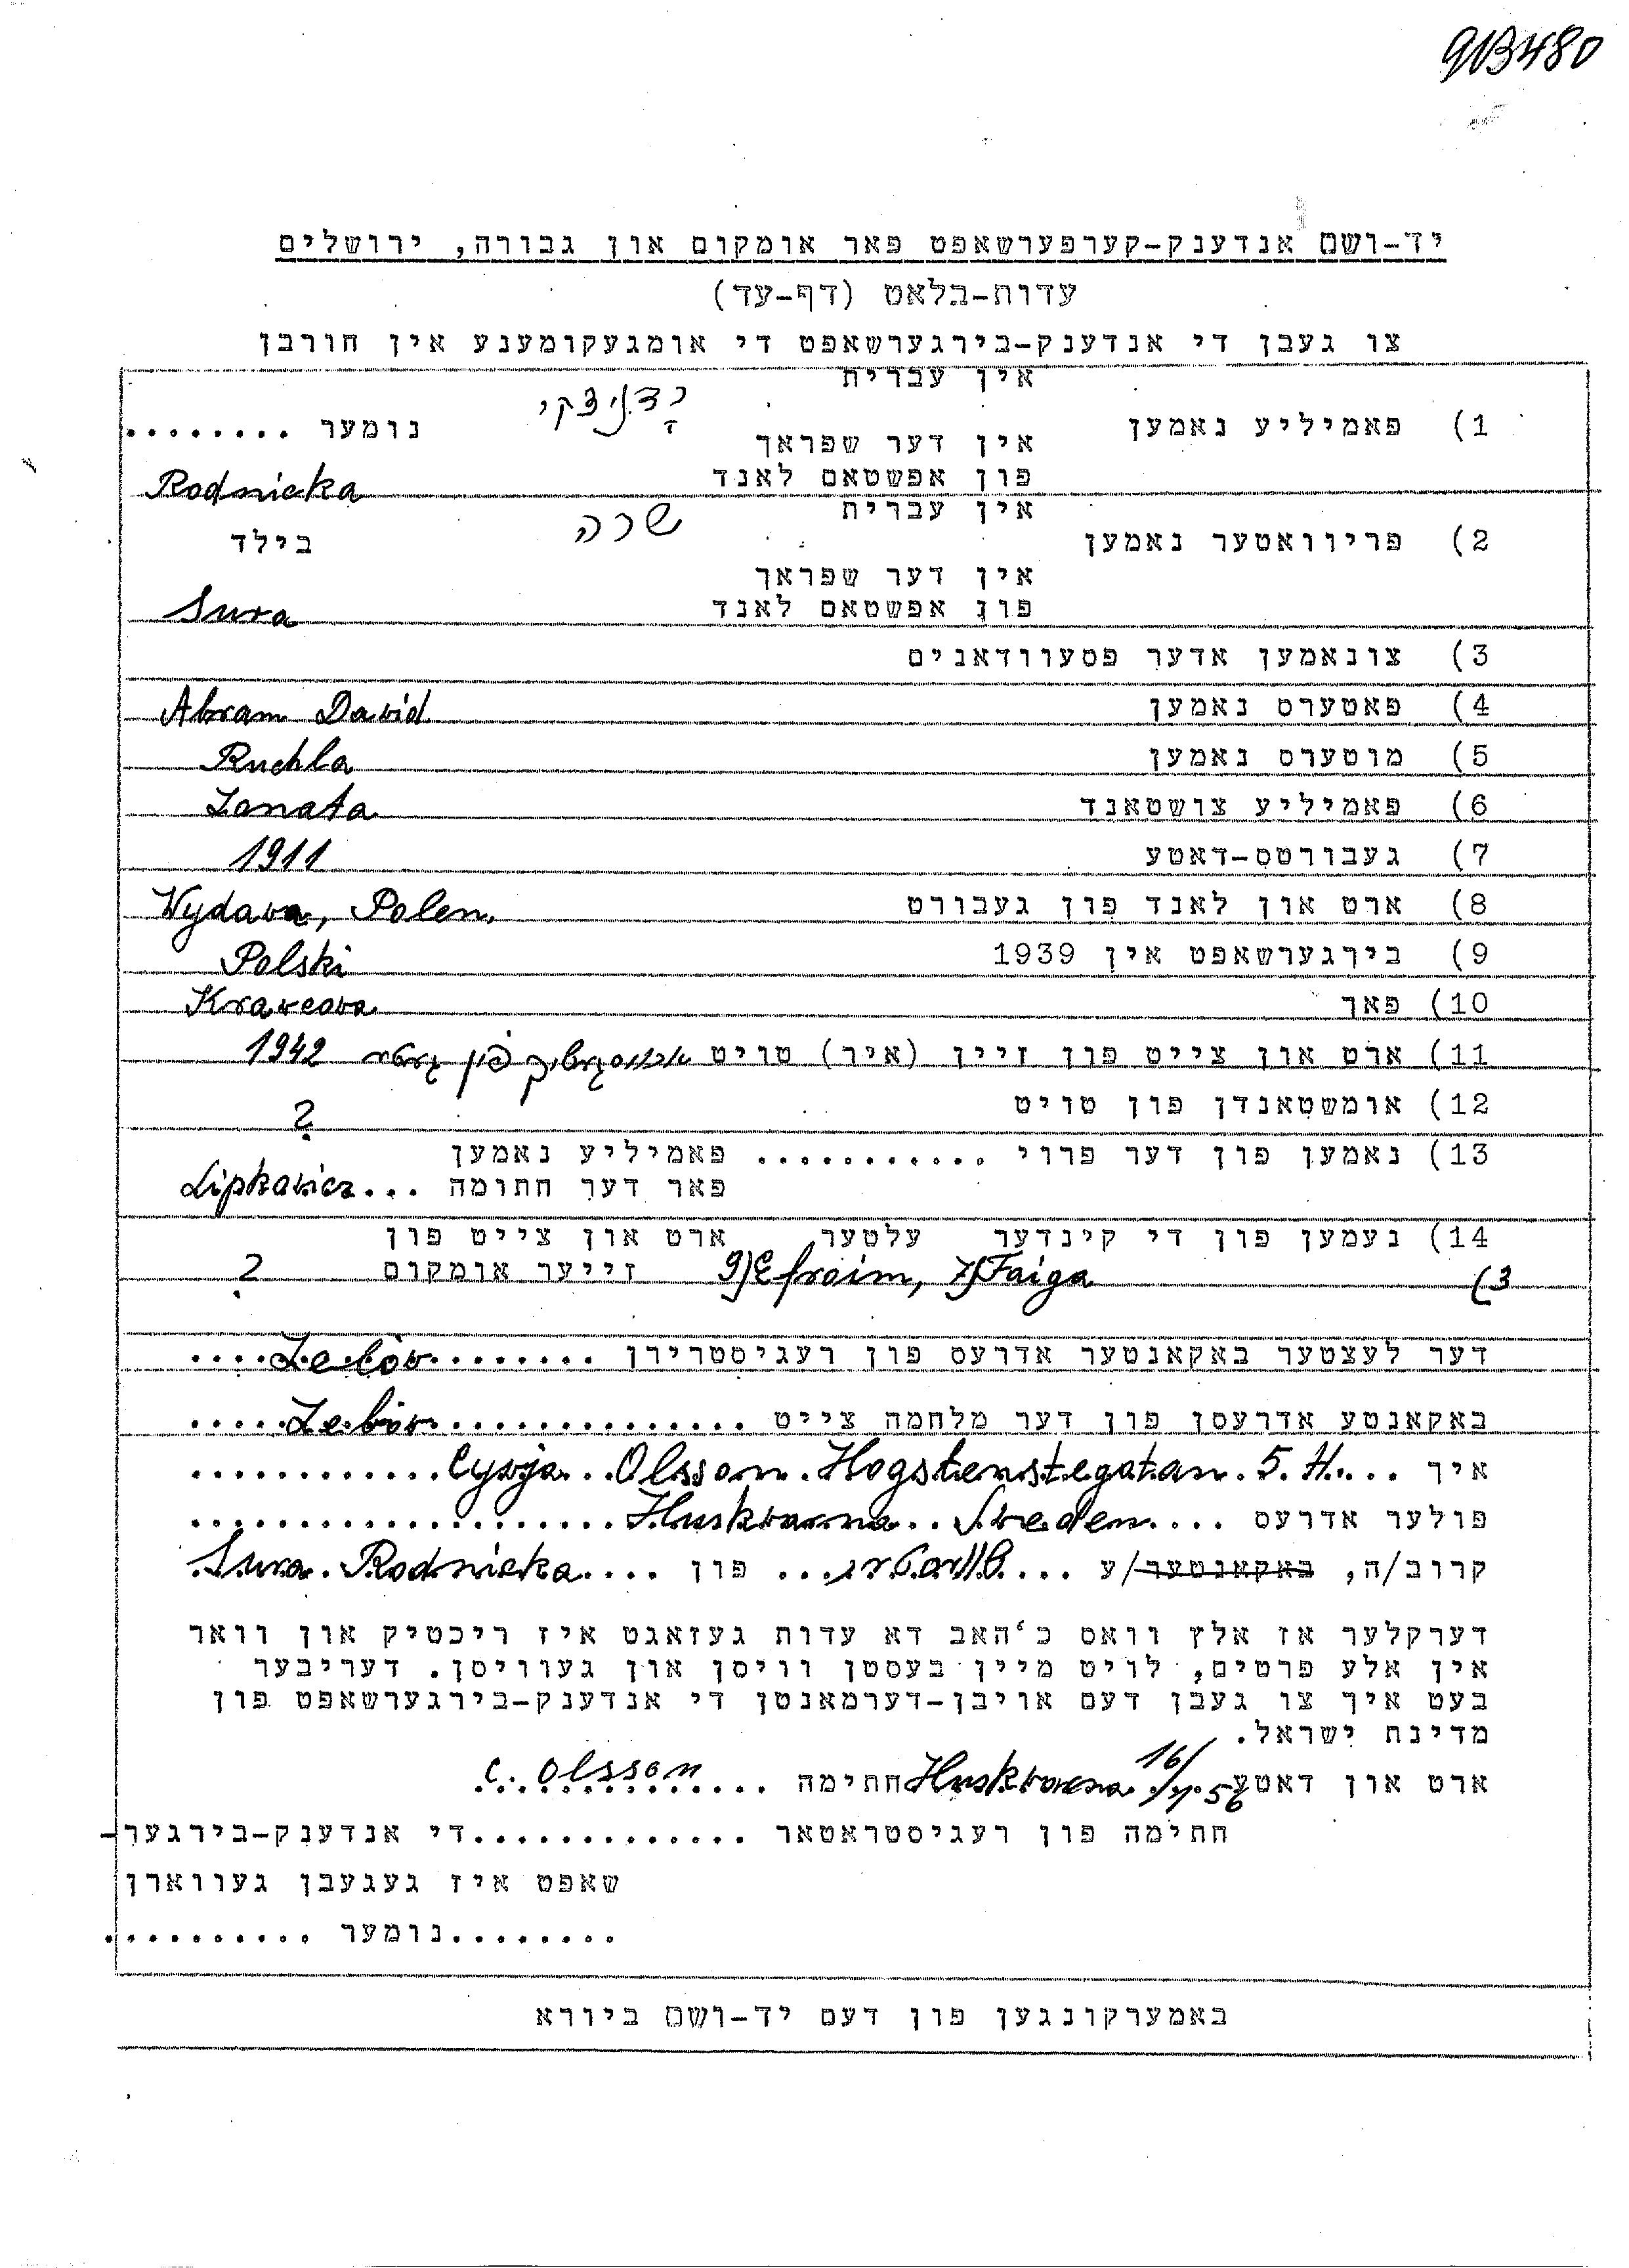 9B480
יד-ושם אנדענק-קערפערשאפט פאר אומקום און גבורה, ירושלים
עדות-בלאט (דף-עד)
צו געבן די אנדענק-בירגערשאפט די אומגעקומענע אין חורבן
אין עברית
1) פאמיליע נאמען נומער ........
אין דער שפראך
פון אפשטאם לאנד Rodnicka
אין עברית שרה
2) פריוואטער נאמען בילד
אין דער שפראך
פון אפשטאם לאנד Sura
3) צונאמען אדער פסעוודאנים
4) פאטערס נאמען Abram David
5) מוטערס נאמען Ruchla
6) פאמיליע צושטאנד Zonata
7) געבורטס-דאטע 1911
8) ארט און לאנד פון געבורט Wydawa, Polen.
9) בירגערשאפט אין 1939 Polski
10) פאך Krawcowa
11) ארט און צייט פון זיין (איר) טויט 1942
12) אומשטאנדן פון טויט ?
13) נאמען פון דער פרוי ........... פאמיליע נאמען
פאר דער חתונה ... Lipkowicz
14) נעמען פון די קינדער עלטער ארט און צייט פון
3) 9) Efroim, 7) Faiga זייער אומקום ?
דער לעצטער באקאנטער אדרעס פון רעגיסטרירן ........ Zelów ....
באקאנטע אדרעסן פון דער מלחמה צייט .............. Zelów .....
איך .... Cywja Olsson Hogstenstegatan 5. H. ............
פולער אדרעס .... Huskvarna Sweden ....................
קרוב/ה, באקאנטער/ע .... פון .... Sura Rodnicka
דערקלער אז אלץ וואס כ'האב דא עדות געזאגט איז ריכטיק און וואר
אין אלע פרטים, לויט מיין בעסטן וויסן און געוויסן. דעריבער
בעט איך צו געבן דעם אויבן-דערמאנטן די אנדענק-בירגערשאפט פון
מדינת ישראל.
ארט און דאטע Huskvarna 16/ 56 חתימה C. Olsson
חתימה פון רעגיסטראטאר ............. די אנדענק-בירגער-
שאפט איז געגעבן געווארן
........ נומער ..........
באמערקונגען פון דעם יד-ושם ביורא